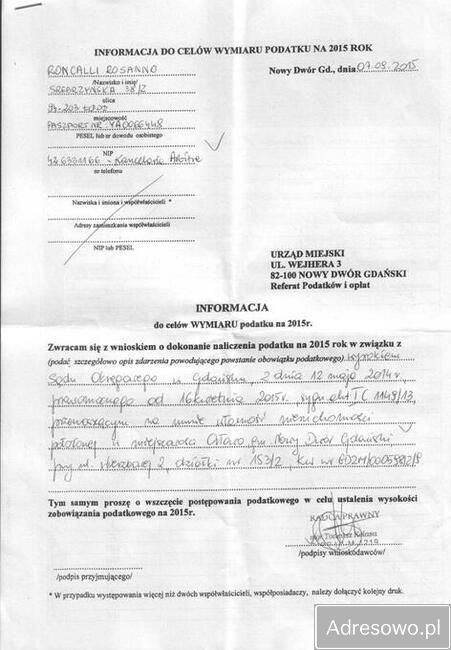 INFORMACJA DO CELÓW WYMIARU PODATKU NA 2015 ROK
RONCALLI ROSANNO
Nowy Dwór Gd., dnia 07.09.2015
/Nazwisko i imię/
SREBRZYŃSKA 38/2
ulica
miejscowość
PASZPORT NR: YA0066448
PESEL lub nr dowodu osobistego
NIP
426381166 - Kancelaria
nr telefonu
Nazwiska i imiona i współwłaścicieli *
Adresy zamieszkania współwłaścicieli
NIP lub PESEL
URZĄD MIEJSKI
UL. WEJHERA 3
82-100 NOWY DWÓR GDAŃSKI
Referat Podatków i opłat
INFORMACJA
do celów WYMIARU podatku na 2015r.
Zwracam się z wnioskiem o dokonanie naliczenia podatku na 2015 rok w związku z
(podać szczegółowo opis zdarzenia powodującego powstanie obowiązku podatkowego) wyrokiem
Sądu Okręgowego w Gdańsku, z dnia 12 maja 2014r
prawomocnego od 16 kwietnia 2015r. sygn. akt I C 1148/13,
przenoszącym na mnie własność nieruchomości
położonej w miejscowości gm. Nowy Dwór Gdański
przy ul. 2 działki nr 153/2, KW nr
Tym samym proszę o wszczęcie postępowania podatkowego w celu ustalenia wysokości
zobowiązania podatkowego na 2015r.
RADCA PRAWNY
/podpisy wnioskodawców/
/podpis przyjmującego/
* W przypadku występowania więcej niż dwóch współwłaścicieli, współposiadaczy, należy dołączyć kolejny druk.
Adresowo.pl